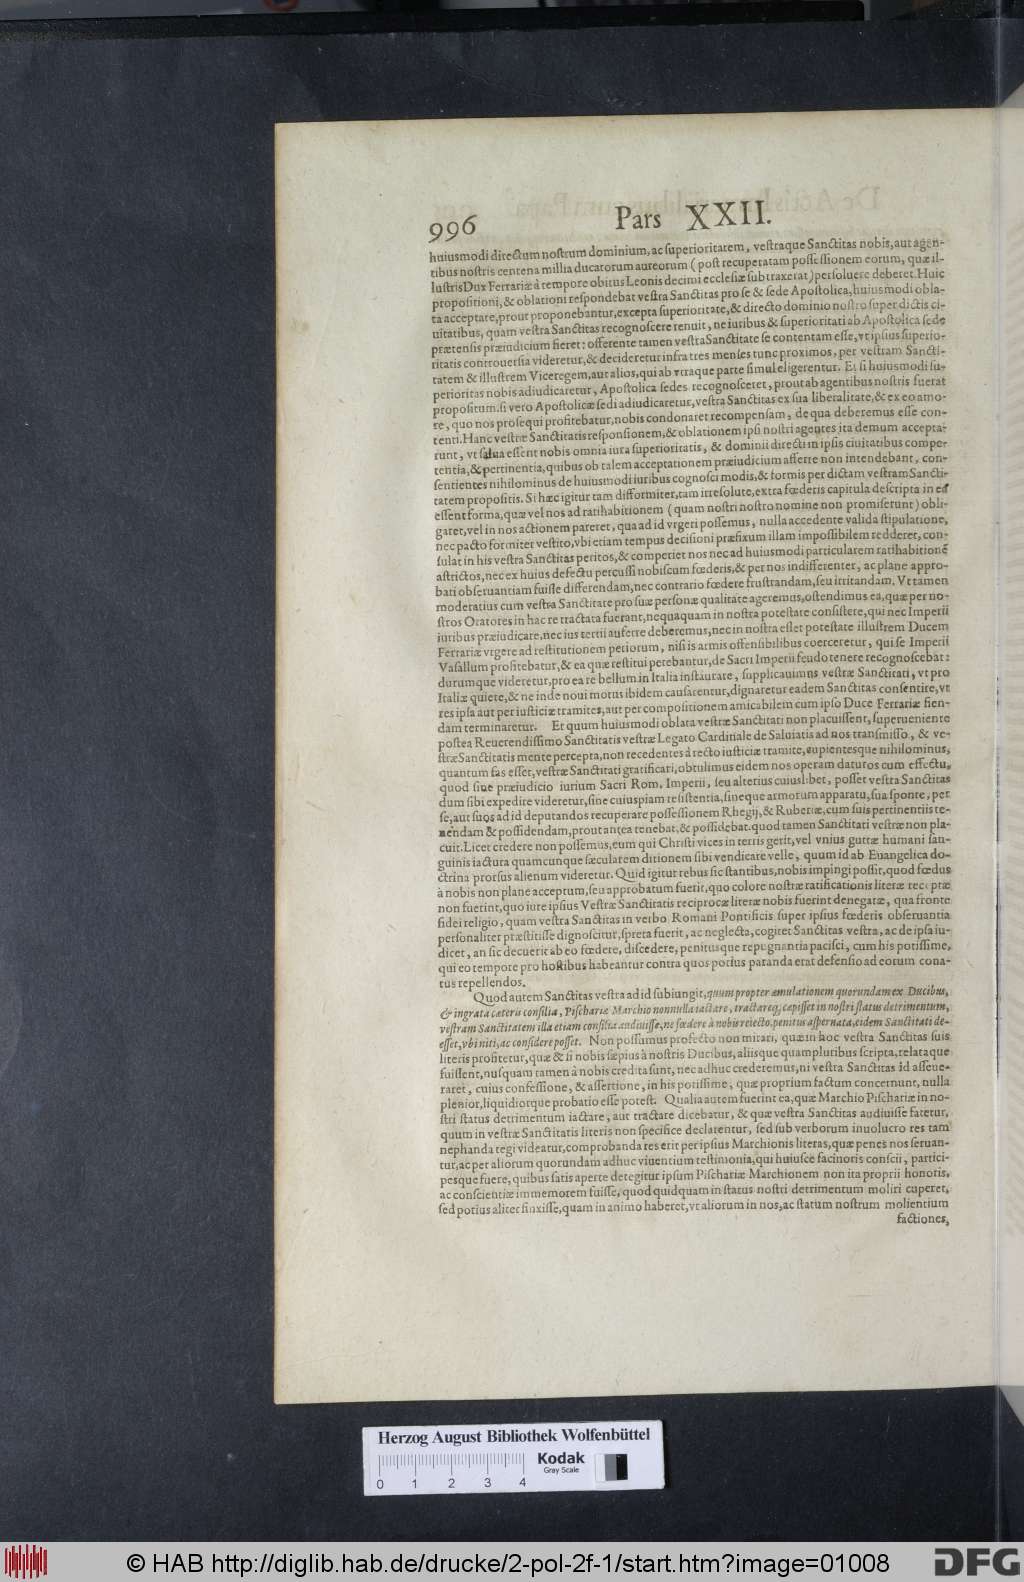 996 Pars XXII.
huiusmodi directum nostrum dominium, ac superioritatem, vestraque Sanctitas nobis, aut agen-
tibus nostris centena millia ducatorum aureorum (post recuperatam possessionem eorum, quæ il-
lustris Dux Ferrariæ à tempore obitus Leonis decimi ecclesiæ subtraxerat) persoluere deberet. Huic
propositioni, & oblationi respondebat vestra Sanctitas pro se & sede Apostolica, huiusmodi obla-
ta acceptare, prout proponebantur, excepta superioritate, & directo dominio nostro super dictis ci-
uitatibus, quam vestra Sanctitas recognoscere renuit, ne iuribus & superioritati ab Apostolica sede
prætensis præiudicium fieret: offerente tamen vestra Sanctitate se contentam esse, vt ipsius superio-
ritatis controuersia videretur, & decideretur infra tres menses tunc proximos, per vestram Sancti-
tatem & illustrem Viceregem, aut alios, qui ab vtraque parte simul eligerentur. Et si huiusmodi su-
perioritas nobis adiudicaretur, Apostolica sedes recognosceret, prout ab agentibus nostris fuerat
propositum. si vero Apostolicæ sedi adiudicaretur, vestra Sanctitas ex sua liberalitate, & ex eo amo-
re, quo nos prosequi profitebatur, nobis condonaret recompensam, de qua deberemus esse con-
tenti. Hanc vestræ Sanctitatis responsionem, & oblationem ipsi nostri agentes ita demum accepta-
runt, vt salua essent nobis omnia iura superioritatis, & dominii directi in ipsis ciuitatibus compe-
tentia, & pertinentia, quibus ob talem acceptationem præiudicium afferre non intendebant, con-
sentientes nihilominus de huiusmodi iuribus cognosci modis, & formis per dictam vestram Sancti-
tatem propositis. Si hæc igitur tam difformiter, tam irresolute, extra fœderis capitula descripta in ea
essent forma, quæ vel nos ad ratihabitionem (quam nostri nostro nomine non promiserunt) obli-
garet, vel in nos actionem pareret, qua ad id vrgeri possemus, nulla accedente valida stipulatione,
nec pacto formiter vestito, vbi etiam tempus decisioni præfixum illam impossibilem redderet, con-
sulat in his vestra Sanctitas peritos, & comperiet nos nec ad huiusmodi particularem ratihabitionẽ
astrictos, nec ex huius defectu percussi nobiscum fœderis, & per nos indifferenter, ac plane appro-
bati obseruantiam fuisse differendam, nec contrario fœdere frustrandam, seu irritandam. Vt tamen
moderatius cum vestra Sanctitate pro suæ personæ qualitate ageremus, ostendimus ea, quæ per no-
stros Oratores in hac re tractata fuerant, nequaquam in nostra potestate consistere, qui nec Imperii
iuribus præiudicare, nec ius tertii auferre deberemus, nec in nostra esset potestate illustrem Ducem
Ferrariæ vrgere ad restitutionem petiorum, nisi is armis offensibilibus coerceretur, qui se Imperii
Vasallum profitebatur, & ea quæ restitui petebantur, de Sacri Imperii feudo tenere recognoscebat:
durumque videretur, pro ea re bellum in Italia instaurare, supplicauimus vestræ Sanctitati, vt pro
Italiæ quiete, & ne inde noui motus ibidem causarentur, dignaretur eadem Sanctitas consentire, vt
res ipsa aut per iusticiæ tramites, aut per compositionem amicabilem cum ipso Duce Ferrariæ fien-
dam terminaretur. Et quum huiusmodi oblata vestræ Sanctitati non placuissent, superueniente
postea Reuerendissimo Sanctitatis vestræ Legato Cardinale de Saluiatis ad nos transmisso, & ve-
stræ Sanctitatis mente percepta, non recedentes à recto iusticiæ tramite, cupientesque nihilominus,
quantum fas esset, vestræ Sanctitati gratificari, obtulimus eidem nos operam daturos cum effectu,
quod sine præiudicio iurium Sacri Rom. Imperii, seu alterius cuiuslibet, posset vestra Sanctitas
dum sibi expedite videretur, sine cuiuspiam resistentia, sineque armorum apparatu, sua sponte, per
se, aut suos ad id deputandos recuperare possessionem Rhegij, & Ruberiæ, cum suis pertinentiis te-
nendam & possidendam, prout antea tenebat, & possidebat. quod tamen Sanctitati vestræ non pla-
cuit. Licet credere non possemus, eum qui Christi vices in terris gerit, vel vnius guttæ humani san-
guinis iactura quamcunque sæcularem ditionem sibi vendicare velle, quum id ab Euangelica do-
ctrina prorsus alienum videretur. Quid igitur rebus sic stantibus, nobis impingi possit, quod fœdus
à nobis non plane acceptum, seu approbatum fuerit, quo colore nostræ ratificationis literæ receptæ
non fuerint, quo iure ipsius Vestræ Sanctitatis reciprocæ literæ nobis fuerint denegatæ, qua fronte
fidei religio, quam vestra Sanctitas in verbo Romani Pontificis super ipsius fœderis obseruantia
personaliter præstitisse dignoscitur, spreta fuerit, ac neglecta, cogitet Sanctitas vestra, ac de ipsa iu-
dicet, an sic decuerit ab eo fœdere, discedere, penitusque repugnantia pacisci, cum his potissime,
qui eo tempore pro hostibus habeantur contra quos potius paranda erat defensio ad eorum cona-
tus repellendos.
Quod autem Sanctitas vestra ad id subiungit, quum propter æmulationem quorundam ex Ducibus,
& ingrata cæteris consilia, Pischariæ Marchio nonnulla iactare, tractareq; cæpisset in nostri status detrimentum,
vestram Sanctitatem illa etiam consilia audiuisse, ne fœdere à nobis reiecto, penitus aspernata, eidem Sanctitati de-
esset, vbi niti, ac considere posset. Non possumus profecto non mirari, quæ in hoc vestra Sanctitas suis
literis profitetur, quæ & si nobis sæpius à nostris Ducibus, aliisque quampluribus scripta, relataque
fuissent, nusquam tamen à nobis credita sunt, nec adhuc crederemus, ni vestra Sanctitas id asseue-
raret, cuius confessione, & assertione, in his potissime, quæ proprium factum concernunt, nulla
plenior, liquidiorque probatio esse potest. Qualia autem fuerint ea, quæ Marchio Pischariæ in no-
stri status detrimentum iactare, aut tractare dicebatur, & quæ vestra Sanctitas audiuisse fatetur,
quum in vestræ Sanctitatis literis non specifice declarentur, sed sub verborum inuolucro res tam
nephanda tegi videatur, comprobanda res erit per ipsius Marchionis literas, quæ penes nos seruan-
tur, ac per aliorum quorundam adhuc viuentium testimonia, qui huiusce facinoris conscii, partici-
pesque fuere, quibus satis aperte detegitur ipsum Pischariæ Marchionem non ita proprii honoris,
ac conscientiæ immemorem fuisse, quod quidquam in status nostri detrimentum moliri cuperet,
sed potius aliter finxisse, quam in animo haberet, vt aliorum in nos, ac statum nostrum molientium
factiones,
Herzog August Bibliothek Wolfenbüttel
0 1 2 3 4
Kodak
Gray Scale
© HAB http://diglib.hab.de/drucke/2-pol-2f-1/start.htm?image=01008
DFG